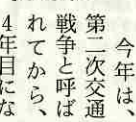 今年は、
第二次交通
戦争と呼ば
れてから、
4年目にな